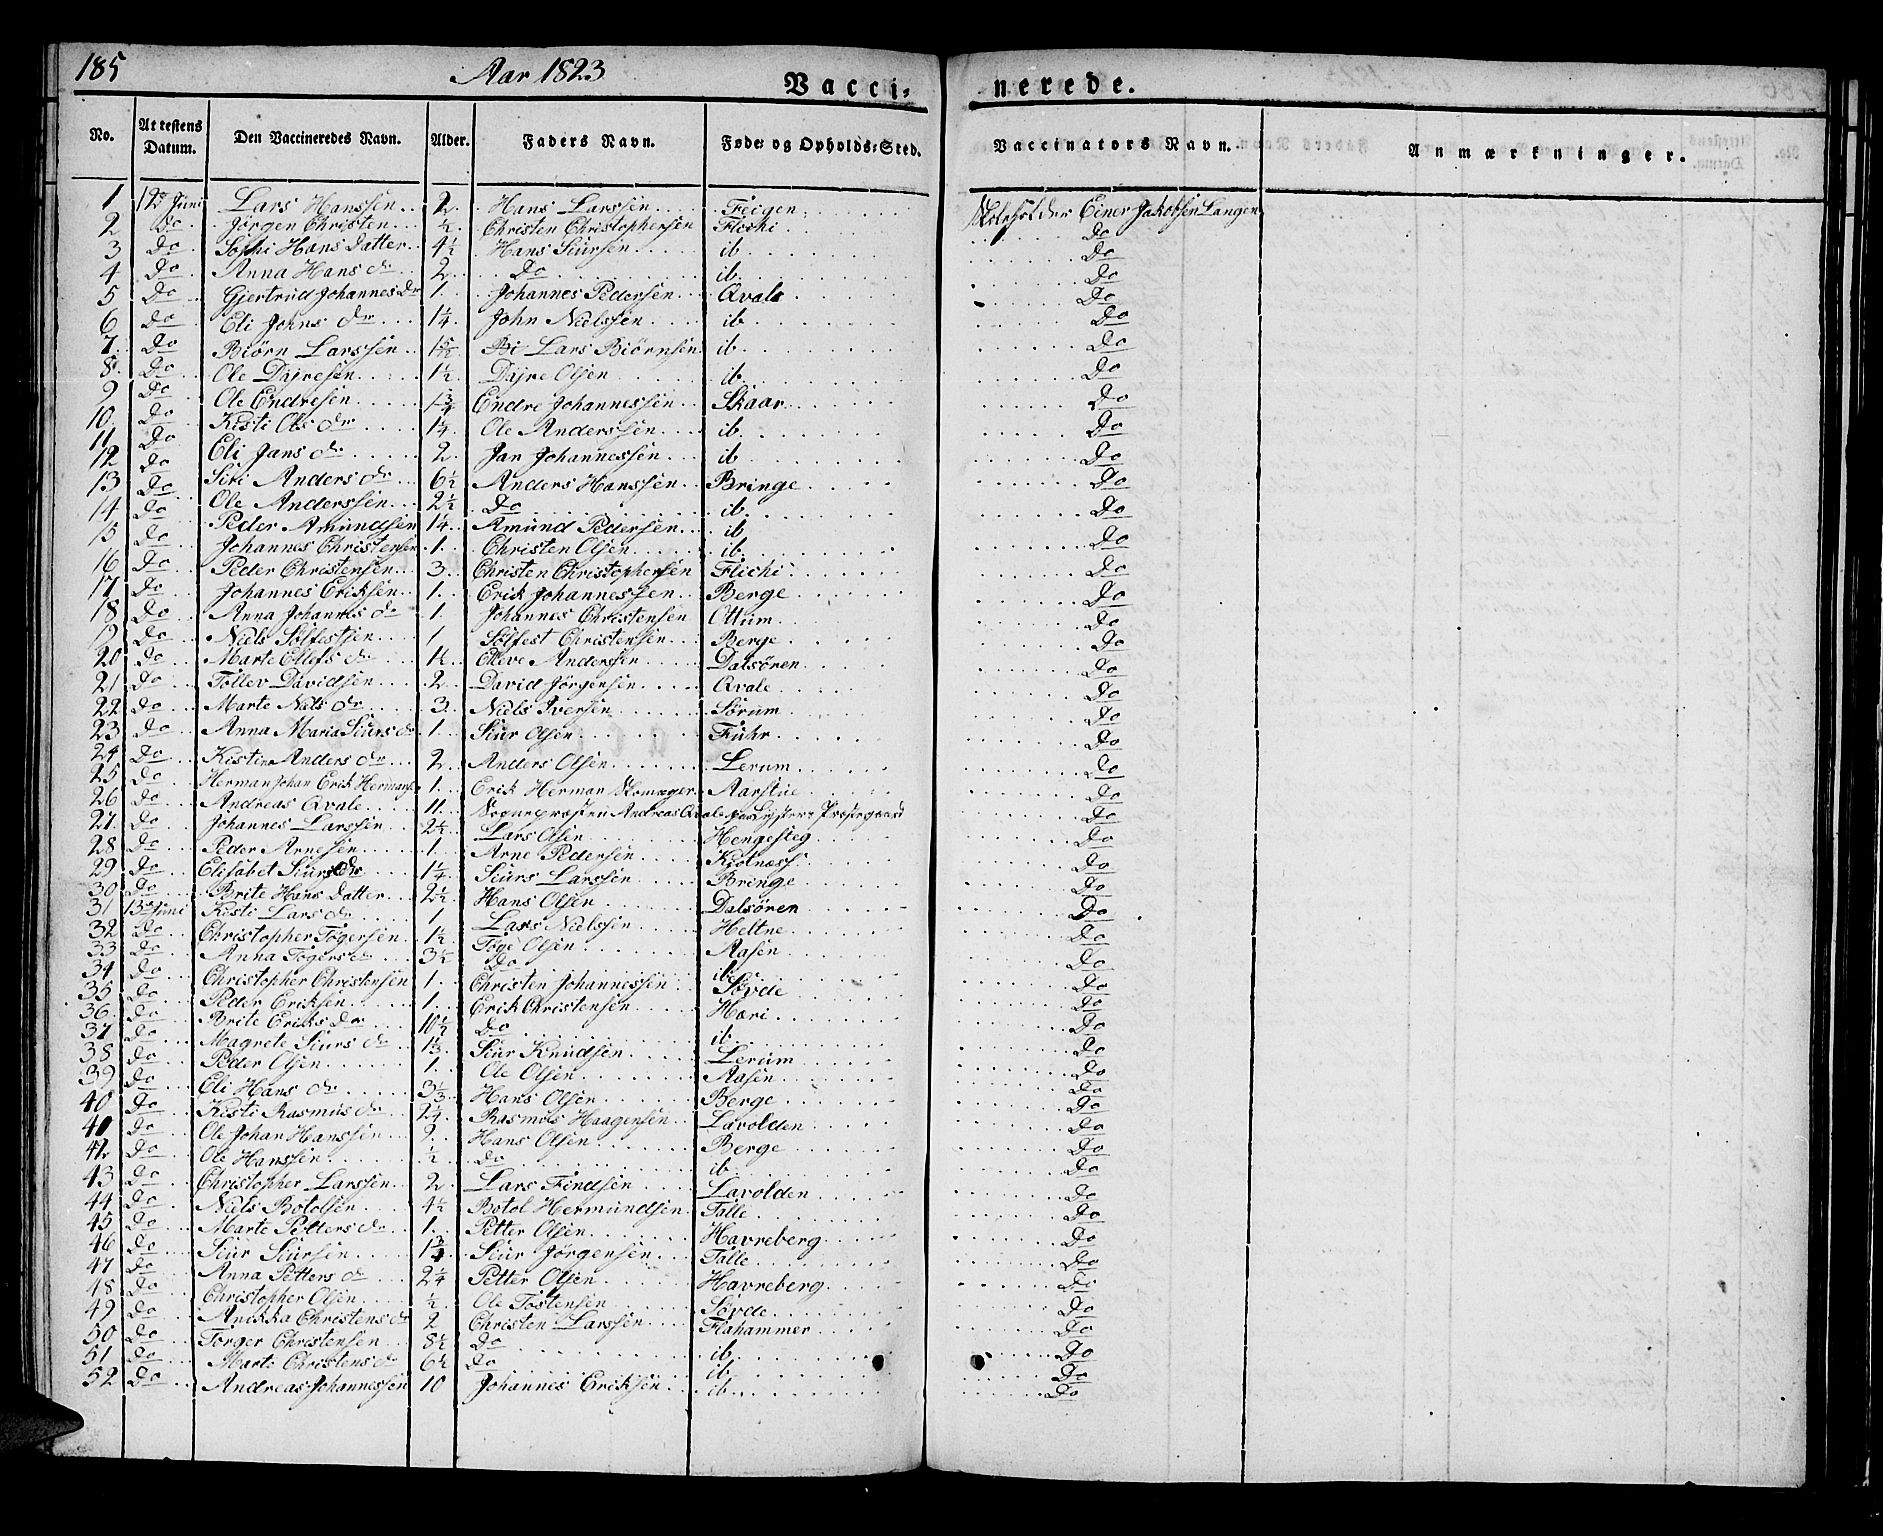 185 Aar 1823 Vacci- nerede.
No. Attestens Datum. Den Vaccineredes Navn. Alder. Faders Navn. Føde- og Opholds-Sted. Vaccinators Navn. Anmærkninger.
1 12te Juni Lars Hanssen 2 Hans Larssen Feigen Einer Jakobsen Langen
2 Do Jörgen Christen ½ Christen Christophersen Flichi Do
3 Do Sophi Hans Datter 4½ Hans Siursen ib Do
4 Do Anna Hans dr 2 Do ib Do
5 Do Gjertrud Johannes Dr 1 Johannes Pedersen Qvale Do
6 Do Eli Johns dr 1¼ John Nielssen ib Do
7 Do Biörn Larssen Lars Biörnsen ib Do
8 Do Ole Dÿresen 1½ Dÿre Olsen ib Do
9 Do Ole Endresen 1¾ Endre Johannessen Skaar Do
10 Do Kisti Ols dr 1¼ Ole Anderssen ib Do
11 Do Eli Jans dr 2 Jan Johannessen ib Do
12 Do Siri Anders dr 6½ Anders Hanssen Bringe Do
13 Do Ole Anderssen 2½ Do ib Do
14 Do Peder Amundsen 1¼ Amund Pedersen ib Do
15 Do Johannes Christensen 1 Christen Olsen ib Do
16 Do Peder Christensen 3 Christen Christophersen Flichi Do
17 Do Johannes Eriksen 1 Erik Johannessen Berge Do
18 Do Anna Johannes dr 1 Johannes Christensen Ottum Do
19 Do Niels Sölfestsen 1 Sölfest Christensen Berge Do
20 Do Marte Ellefs dr Elleve Anderssen Dalsören Do
21 Do Tollev Davidsen 2 David Jörgensen Qvale Do
22 Do Marte Niels dr 3 Niels Iversen Sörum Do
23 Do Anna Maria Siurs dr 1 Siur Olsen Fuhr Do
24 Do Kistine Anders dr 2 Anders Olsen Lerum Do
25 Do Herman Johan Erik Hermans 1 Erik Herman Skomager Aarstue Do
26 Do Andreas Qvale 11 Sognepræsten Andreas Qvale paa Lysters Præstegaard
27 Do Johannes Larssen 2½ Lars Olsen Hengesteg Do
28 Do Peder Arnesen 1 Arne Pedersen Do
29 Do Elisabet Siurs dr 1¼ Siurs Larssen Bringe Do
30 Do Brite Hans Datter 2½ Hans Olsen Dalsören Do
31 13de Juni Kisti Lars dr 1 Lars Nielssen Heltne Do
32 Do Christopher Tögersen 1½ Töge Olsen Aasen Do
33 Do Anna Tögers dr 3½ Do ib Do
34 Do Christopher Christensen 1 Christen Johannessen Sövde Do
35 Do Peder Eriksen 1 Erik Christensen Hæri Do
36 Do Brite Eriks Dr 10½ Do ib Do
37 Do Magrete Siurs dr 1⅓ Siur Knudsen Lerum Do
38 Do Peder Olsen 1 Ole Olsen Aasen Do
39 Do Eli Hans dr 3⅓ Hans Olsen Berge Do
40 Do Kisti Rasmus dr 2¼ Rasmus Haagensen Lavolden Do
40 Do Ole Johan Hanssen 9 Hans Olsen Berge Do
42 Do Ole Hanssen ½ Do ib Do
43 Do Christopher Larssen 2 Lars Findsen Lavolden Do
44 Do Niels Botolsen 4½ Botol Hermundsen Talle Do
45 Do Marte Petters dr 1 Petter Olsen Havreberg Do
46 Do Siur Siursen 1¾ Siur Jörgensen Talle Do
47 Do Anna Petters dr 2¼ Petter Olsen Havreberg Do
48 Do Christopher Olsen ½ Ole Tostensen Sövde Do
49 Do Anikka Christens dr 2 Christen Larssen Flahammer Do
50 Do Torger Christensen 8½ Do ib Do
51 Do Marte Christens dr 6½ Do ib Do
52 Do Andreas Johannessen 10 Johannes Eriksen ib Do